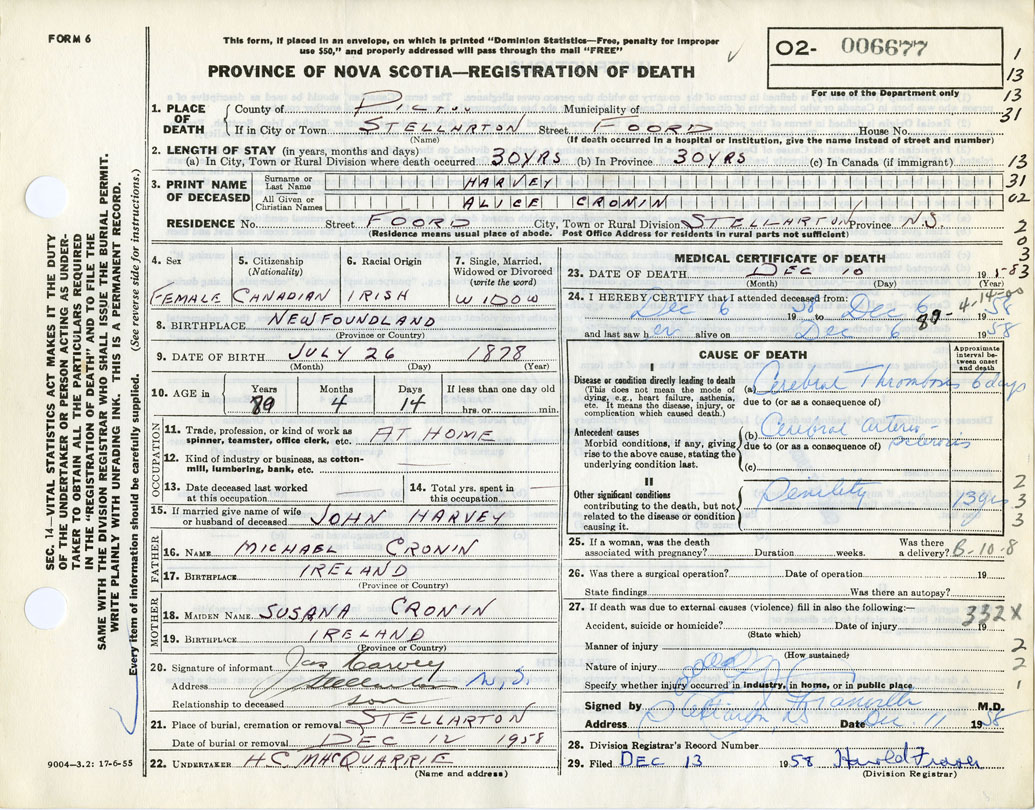 FORM 6
This form, if placed in an envelope, on which is printed "Dominion Statistics—Free, penalty for improper
use $50," and properly addressed will pass through the mail "FREE"
PROVINCE OF NOVA SCOTIA—REGISTRATION OF DEATH
02- 006677
For use of the Department only
1
13
13
31
13
31
02
2
0
3
3
SEC. 14—VITAL STATISTICS ACT MAKES IT THE DUTY
OF THE UNDERTAKER OR PERSON ACTING AS UNDER-
TAKER TO OBTAIN ALL THE PARTICULARS REQUIRED
IN THE "REGISTRATION OF DEATH" AND TO FILE THE
SAME WITH THE DIVISION REGISTRAR WHO SHALL ISSUE THE BURIAL PERMIT.
WRITE PLAINLY WITH UNFADING INK. THIS IS A PERMANENT RECORD.
Every item of information should be carefully supplied. (See reverse side for instructions.)
1. PLACE OF DEATH
County of PICTOU Municipality of
If in City or Town STELLARTON Street FOORD House No.
(Name) (If death occurred in a hospital or Institution, give the name instead of street and number)
2. LENGTH OF STAY (in years, months and days)
(a) In City, Town or Rural Division where death occurred 30 YRS (b) In Province 30 YRS (c) In Canada (if immigrant)
3. PRINT NAME OF DECEASED
Surname or Last Name HARVEY
All Given or Christian Names ALICE CRONIN
RESIDENCE No. Street FOORD City, Town or Rural Division STELLARTON Province N.S.
(Residence means usual place of abode. Post Office Address for residents in rural parts not sufficient)
4. Sex 5. Citizenship (Nationality) 6. Racial Origin 7. Single, Married, Widowed or Divorced (write the word)
FEMALE CANADIAN IRISH WIDOW
8. BIRTHPLACE NEWFOUNDLAND
(Province or Country)
9. DATE OF BIRTH JULY 26 1878
(Month) (Day) (Year)
10. AGE in Years Months Days If less than one day old
4 14 hrs. or min.
OCCUPATION
11. Trade, profession, or kind of work as
spinner, teamster, office clerk, etc. AT HOME
12. Kind of industry or business, as cotton-
mill, lumbering, bank, etc.
13. Date deceased last worked
at this occupation
14. Total yrs. spent in
this occupation
15. If married give name of wife
or husband of deceased JOHN HARVEY
FATHER
16. NAME MICHAEL CRONIN
17. BIRTHPLACE IRELAND
(Province or Country)
MOTHER
18. MAIDEN NAME SUSANA CRONIN
19. BIRTHPLACE IRELAND
(Province or Country)
20. Signature of informant Jas Harvey
Address Stellarton N.S.
Relationship to deceased son
21. Place of burial, cremation or removal STELLARTON
Date of burial or removal DEC 12 1958
22. UNDERTAKER H.C. MACQUARRIE
(Name and address)
9004—3.2: 17-6-55
MEDICAL CERTIFICATE OF DEATH
23. DATE OF DEATH DEC 10 1958
(Month) (Day) (Year)
24. I HEREBY CERTIFY that I attended deceased from:
Dec 6 1958 to Dec 6 1958
80-4-14-00
and last saw her alive on Dec 6 1958
CAUSE OF DEATH
Approximate interval between onset and death
I
Disease or condition directly leading to death
(This does not mean the mode of
dying, e.g., heart failure, asthenia,
etc. It means the disease, injury, or
complication which caused death.)
(a) Cerebral Thrombosis 6 days
due to (or as a consequence of)
Antecedent causes
Morbid conditions, if any, giving
rise to the above cause, stating the
underlying condition last.
(b) Cerebral arterio-
sclerosis
due to (or as a consequence of)
(c)
II
Other significant conditions
contributing to the death, but not
related to the disease or condition
causing it.
Senility 13 yrs
2
3
3
25. If a woman, was the death
associated with pregnancy? Duration weeks. Was there
a delivery? B-10-8
26. Was there a surgical operation? Date of operation 19
State findings Was there an autopsy?
27. If death was due to external causes (violence) fill in also the following:—
332X
Accident, suicide or homicide? Date of injury 19
(State which)
Manner of injury
(How sustained)
2
Nature of injury
2
Specify whether injury occurred in industry, in home, or in public place
1
Signed by M.D.
Address Stellarton NS Date Dec. 11 1958
28. Division Registrar's Record Number
29. Filed DEC 13 1958 Harold Fraser
(Division Registrar)